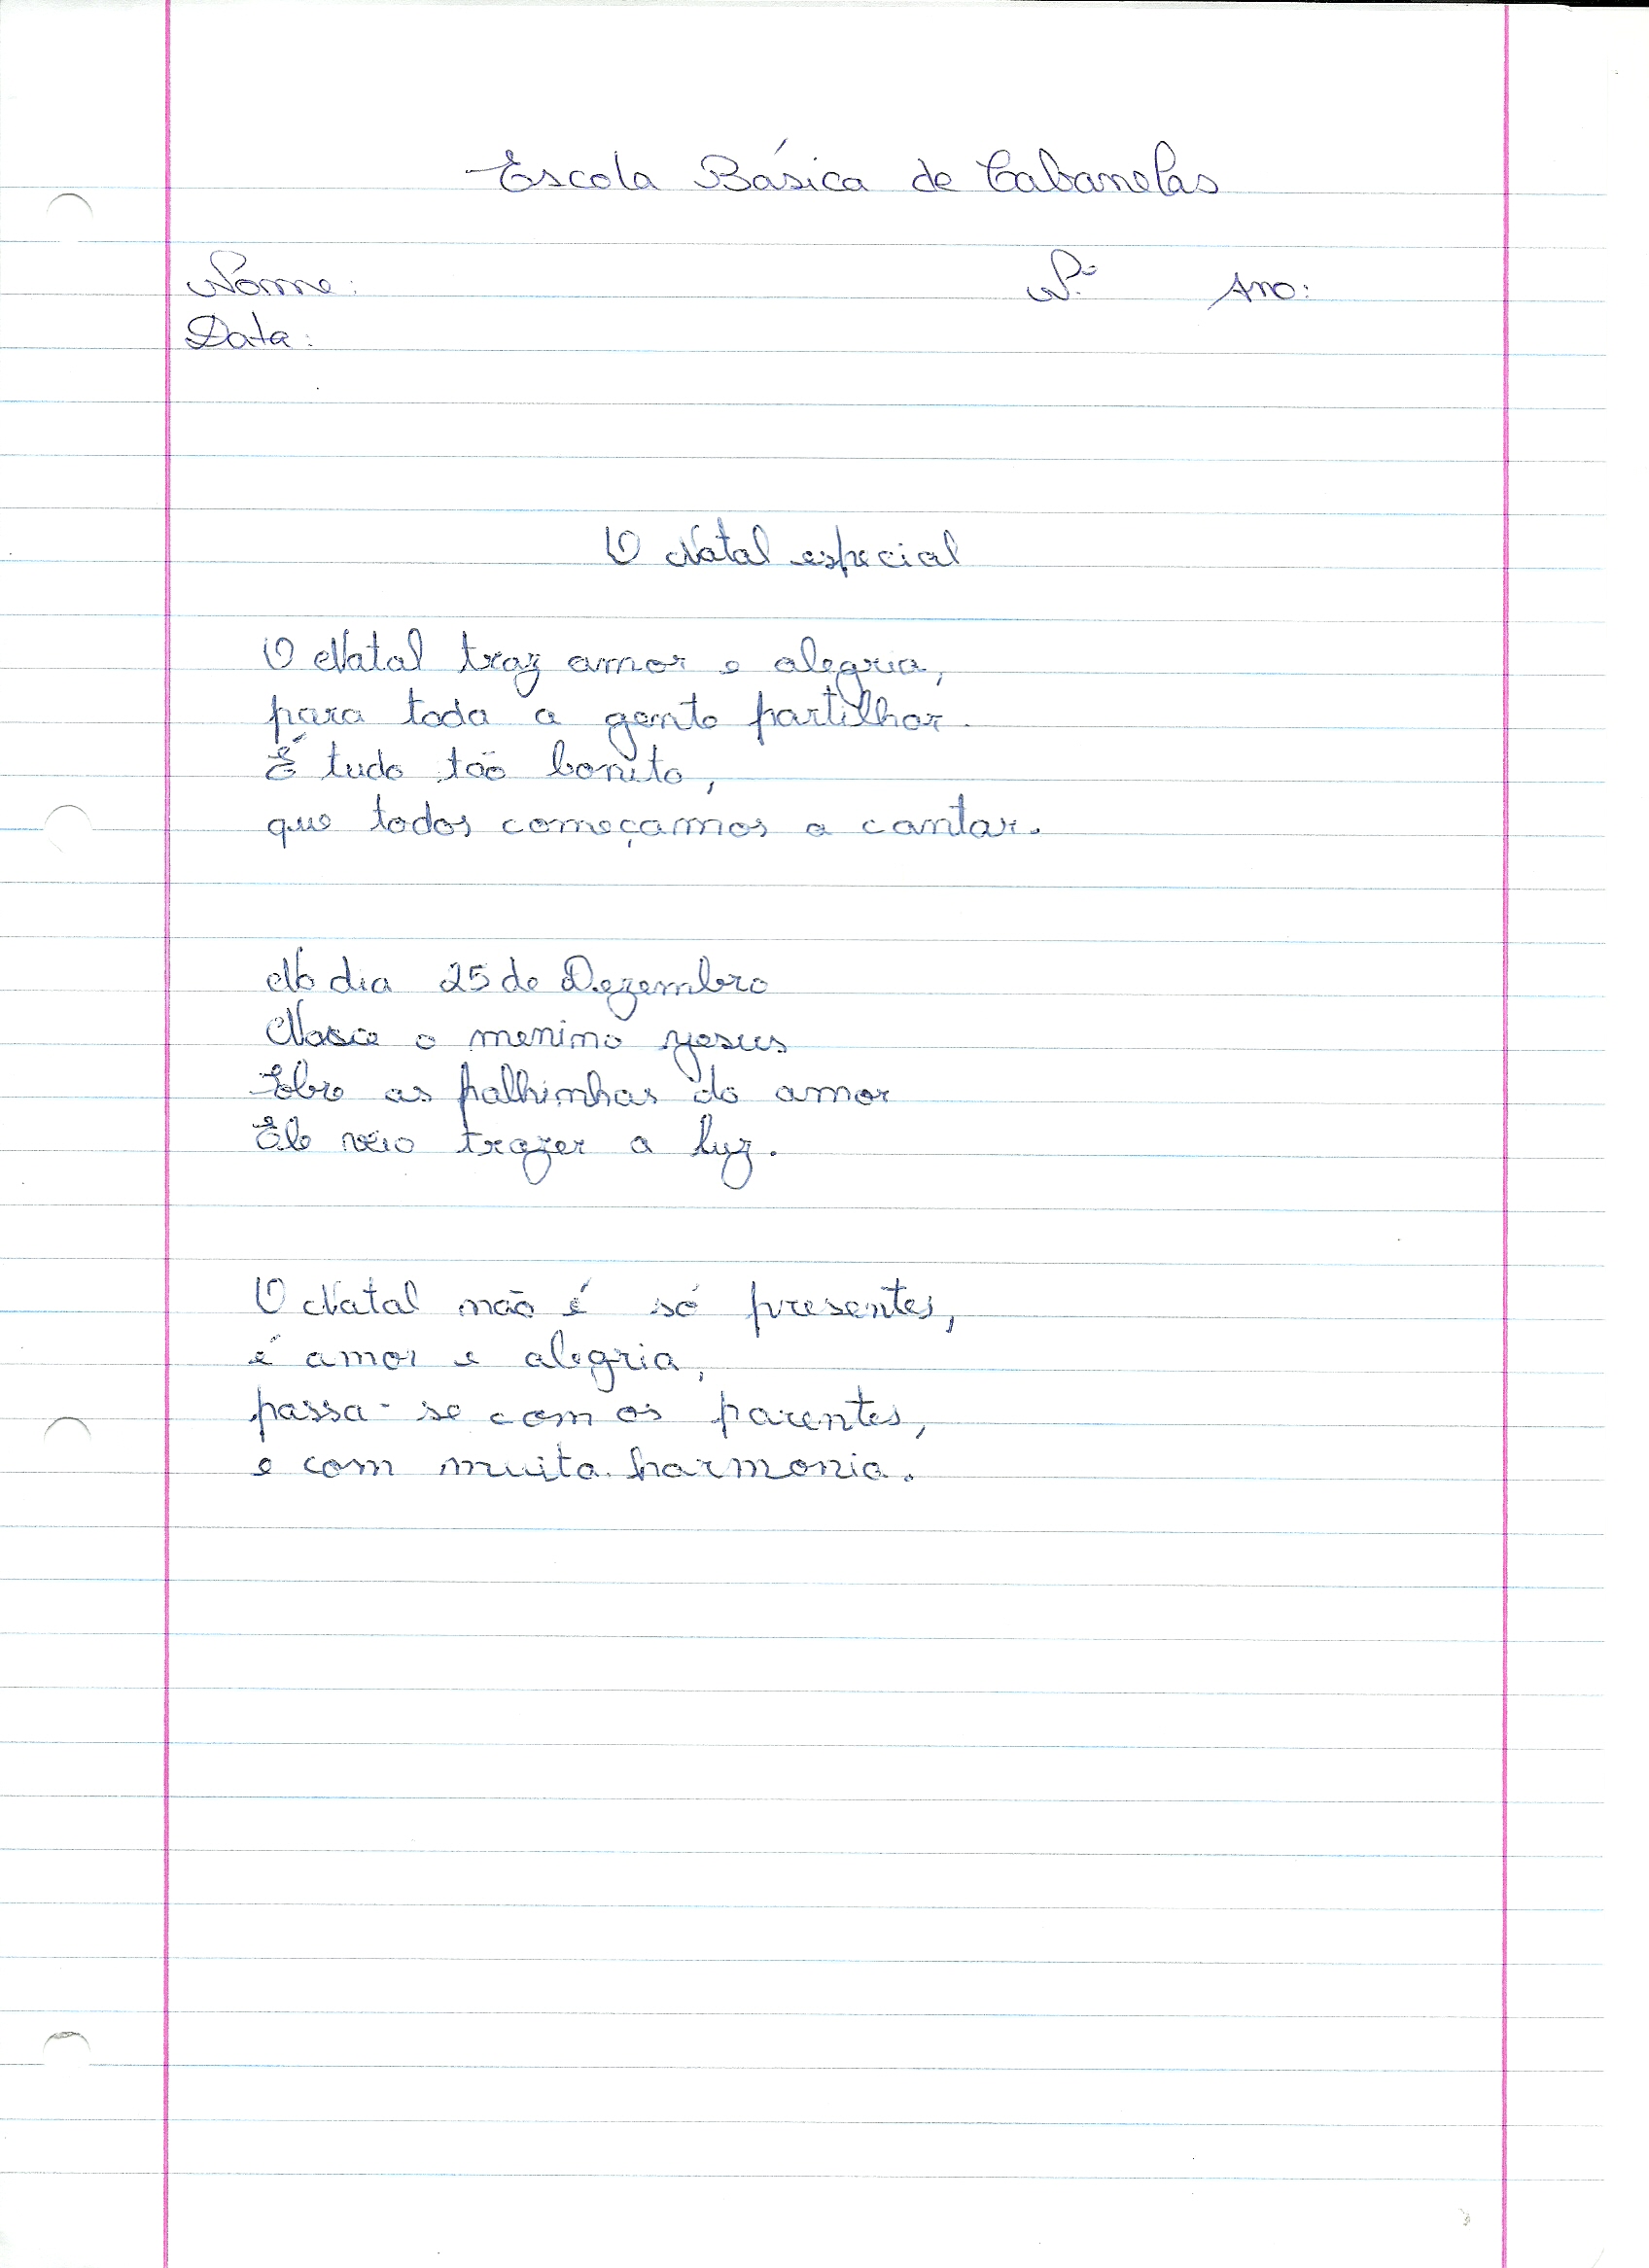 Escola Básica de Cabanelas
Nome: N.º Ano:
Data:
O Natal especial
O Natal traz amor e alegria,
para toda a gente partilhar.
É tudo tão bonito,
que todos começamos a cantar.
No dia 25 de Dezembro
Nasce o menino Jesus
Sobre as palhinhas do amor
Ele veio trazer a luz.
O Natal não é só presentes,
é amor e alegria,
passa-se com os parentes,
e com muita harmonia.